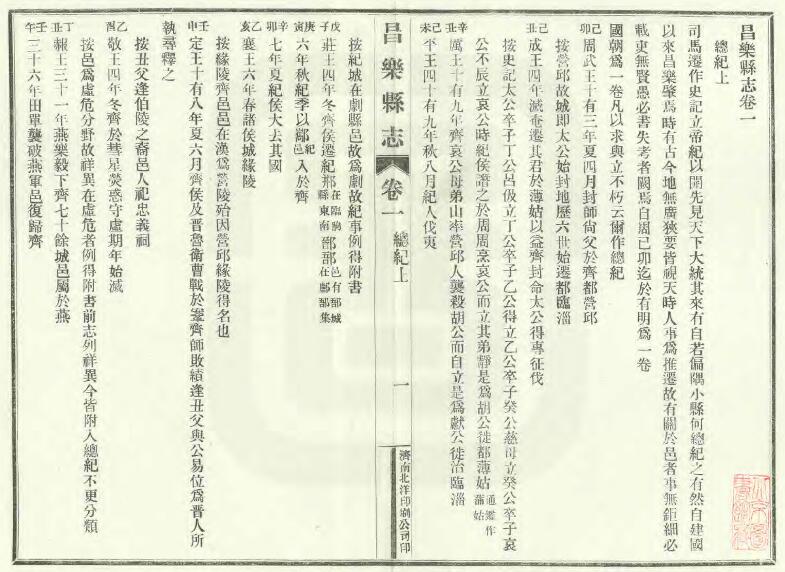 昌樂縣志卷一
總紀上
司馬遷作史記立帝紀以開先見天下大統其來有自若偏隅小縣何總紀之有然自建國
以來昌樂肇焉時有古今地無廣狹要皆視天時人事爲推遷故有關於邑者事無鉅細必
載吏無賢愚必書失考者闕焉自周已卯迄於有明爲一卷
國朝爲一卷凡以求與立不朽云爾作總紀
己卯 周武王十有三年夏四月封師尙父於齊都營邱
按營邱故城即太公始封地歷六世始遷都臨淄
己丑 成王四年滅奄遷其君於薄姑以益齊封命太公得專征伐
按史記太公卒子丁公呂伋立丁公卒子乙公得立乙公卒子癸公慈母立癸公卒子哀
公不辰立哀公時紀侯譖之於周周烹哀公而立其弟靜是爲胡公徙都薄姑 通鑑作蒲姑
辛丑 厲王十有九年齊哀公母弟山率營邱人襲殺胡公而自立是爲獻公徙治臨淄
己未 平王四十有九年秋八月紀人伐夷
昌樂縣志
卷一 總紀上
一
濟南北洋印刷公司印
按紀城在劇縣邑故爲劇故紀事例得附書
戊子 莊王四年冬齊侯遷紀郱 在臨朐縣東南 鄑 邑有鄑城 郚 在郚集
庚寅 六年秋紀季以酅 紀邑 入於齊
辛卯 七年夏紀侯大去其國
乙亥 襄王六年春諸侯城緣陵
按緣陵齊邑邑在漢爲營陵殆因營邱緣陵得名也
壬申 定王十有八年夏六月齊侯及晋魯衛曹戰於鞌齊師敗績逢丑父與公易位爲晋人所
執尋釋之
按丑父逢伯陵之裔邑人祀忠義祠
乙酉 敬王四年冬齊於彗星熒惑守虛期年始滅
按邑爲虛危分野故祥異在虛危者例得附書前志列祥異今皆附入總紀不更分類
丁丑 赧王三十一年燕樂毅下齊七十餘城邑屬於燕
壬午 三十六年田單襲破燕軍邑復歸齊